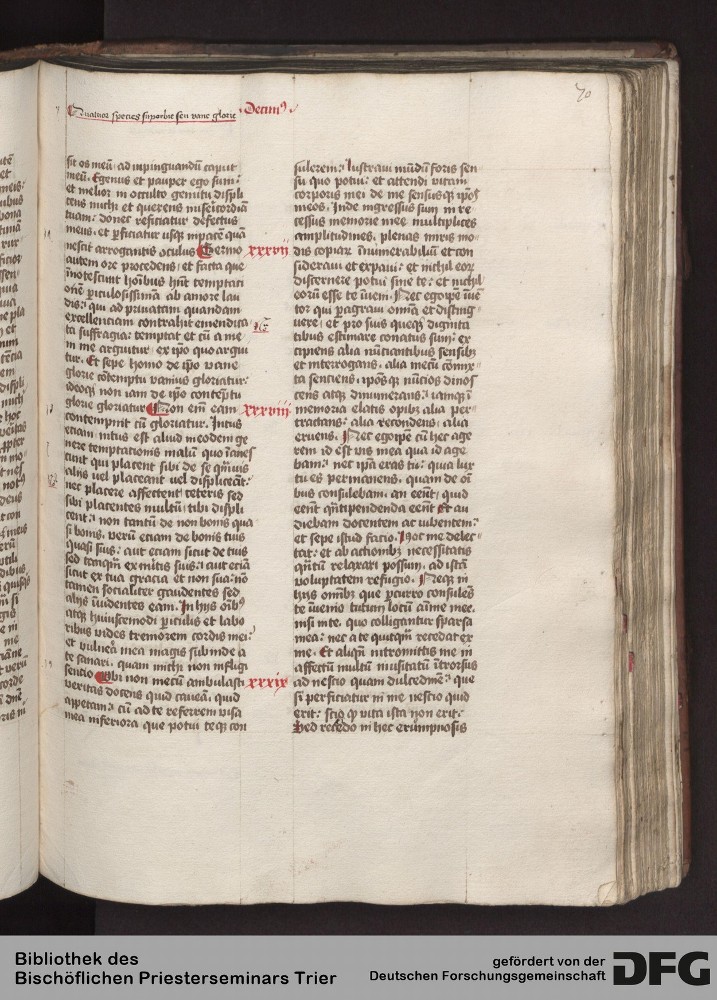 Quatuor species superbie seu vane glorie
Decim9
70
sit os meū ad inpinguandū caput
meū. Egenus et pauper ego sum:
et melior in occulto gemitu displi
cens michi et querens misericordiā
tuam: donec reficiatur defectus
meus: et ꝑficiatur usqꝫ in pacē quā
nescit arrogantis oculus Sermo xxxvij
autem ore procedens: et facta que
innotescunt hoībus hn̄t temptati
onē ꝑiculosissimā ab amore lau
dis: qui ad privatam quandam
excellenciam contrahit emendica
ta suffragia: temptat et cū a me
in me arguitur ex ip̄o quo argui
tur. Et sepe homo de ip̄o vane
glorie cōtemptu vanius gloriatur:
ideoqꝫ non iam de ip̄o contēptu
glorie gloriatur Non em̄ eam xxxviij
contempnit cū gloriatur. Intus
eciam intus est aliud in eodem ge
nere temptationis malū quo inanes
cunt qui placent sibi de se qm̄vis
alijs vel placeant vel displiceāt:
nec placere affectent ceteris sed
sibi placentes multū tibi displi
cent: non tantū de non bonis qua
si bonis. verū etiam de bonis tuis
quasi suis: aut eciam sicut de tuis
sed tanqm̄ ex mitis suis: aut eciā
sicut ex tua gracia et non sua: nō
tamen socialiter gaudentes sed
alijs īvidentes eam. In hijs ōibꝫ
atqꝫ huiuscemodi ꝑiculis et labo
ribus vides tremorem cordis mei:
et vulnera mea magis subinde a
te sanari. quam michi non infligi
sentio Ubi non mecū ambulasti xxxix
veritas docens quid caveā. quid
appetam: cū ad te referrem visa
mea inferiora que potui teqꝫ con
sulerem: lustravi mūdū foris sen
su quo potui: et attendi vitam
corporis mei de me sensusqꝫ ip̄os
meos. Inde ingressus sum in re
cessus memorie mee multiplices
amplitudines. plenas miris mo
dis copiarꝫ innumerabiliū et con
sideravi et expavi: et nichil eorꝫ
discernere potui sine te: et nichil
eorū esse te īveni. Nec egoip̄e īvē
tor qui ꝑagravi omīa et disting
uere: et pro suis queqꝫ dignita
tibus estimare conatus sum: ex
cipiens alia nūciantibus sensibꝫ
et interrogans. alia mecū cōmix
ta senciens. ip̄osqꝫ nūcios dinos
cens atqꝫ dinumerans: iamqꝫ in
memoria elatis opibꝫ alia per
tractans: alia recondens: alia
eruens. Nec egoip̄e cū hec age
rem id est vis mea qua id age
bam: nec ip̄a eras tu: quia lux
tu es permanens. quam de oī
bus consulebam. an eēnt. quid
eēnt qm̄tipendenda eēnt Et au
diebam docentem ac iubentem:
et sepe istud facio. Hoc me delec
tat: et ab actionibꝫ necessitatis
qm̄tū relaxari possum, ad istā
voluptatem refugio. Neqꝫ in
hijs omībꝫ que ꝑcurro consulēs
te īvenio tutum locū aīme mee.
nisi in te. quo colligantur sparsa
mea: nec a te quicqm̄ recedat ex
me. Et aliqn̄ intromittis me in
affectū multū inusitatū ītrorsus
ad nescio quam dulcedinē: que
si perficiatur in me nescio quid
erit: scio ꝙ vita ista non erit:
Sed recedo in hec erumpnosis
Bibliothek des
Bischöflichen Priesterseminars Trier
gefördert von der
Deutschen Forschungsgemeinschaft
DFG